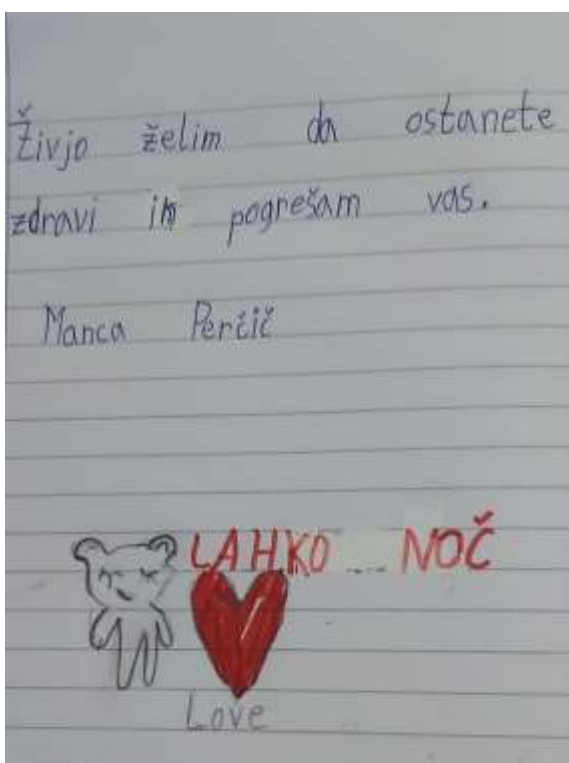 Živjo želim da ostanete
zdravi in pogrešam vas.
Manca Perčič
LAHKO NOČ
Love